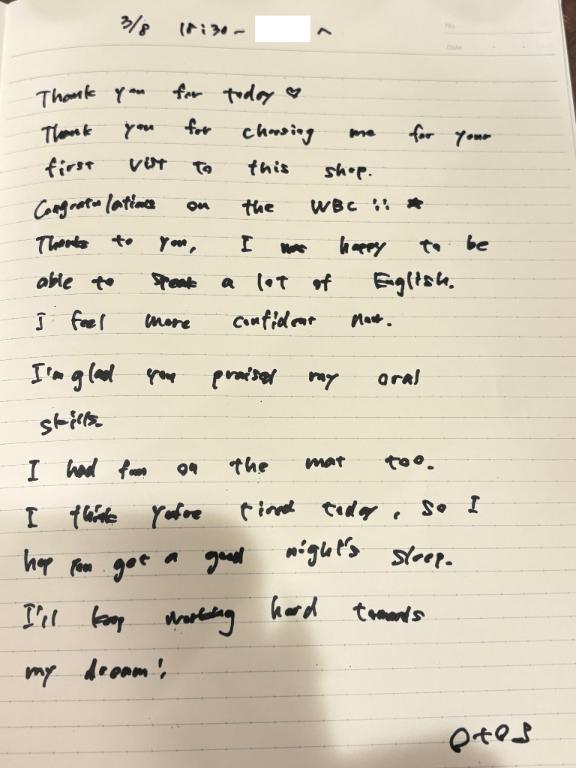 3/8 18:30~ へ
Thank you for today ♡
Thank you for choosing me for your
first visit to this shop.
Congratulations on the WBC !! ★
Thanks to you, I was happy to be
able to speak a lot of English.
I feel more confident now.
I'm glad you praised my oral
skills.
I had fun on the mat too.
I think you're tired today, so I
hop you get a good night's sleep.
I'll keep working hard towards
my dream!